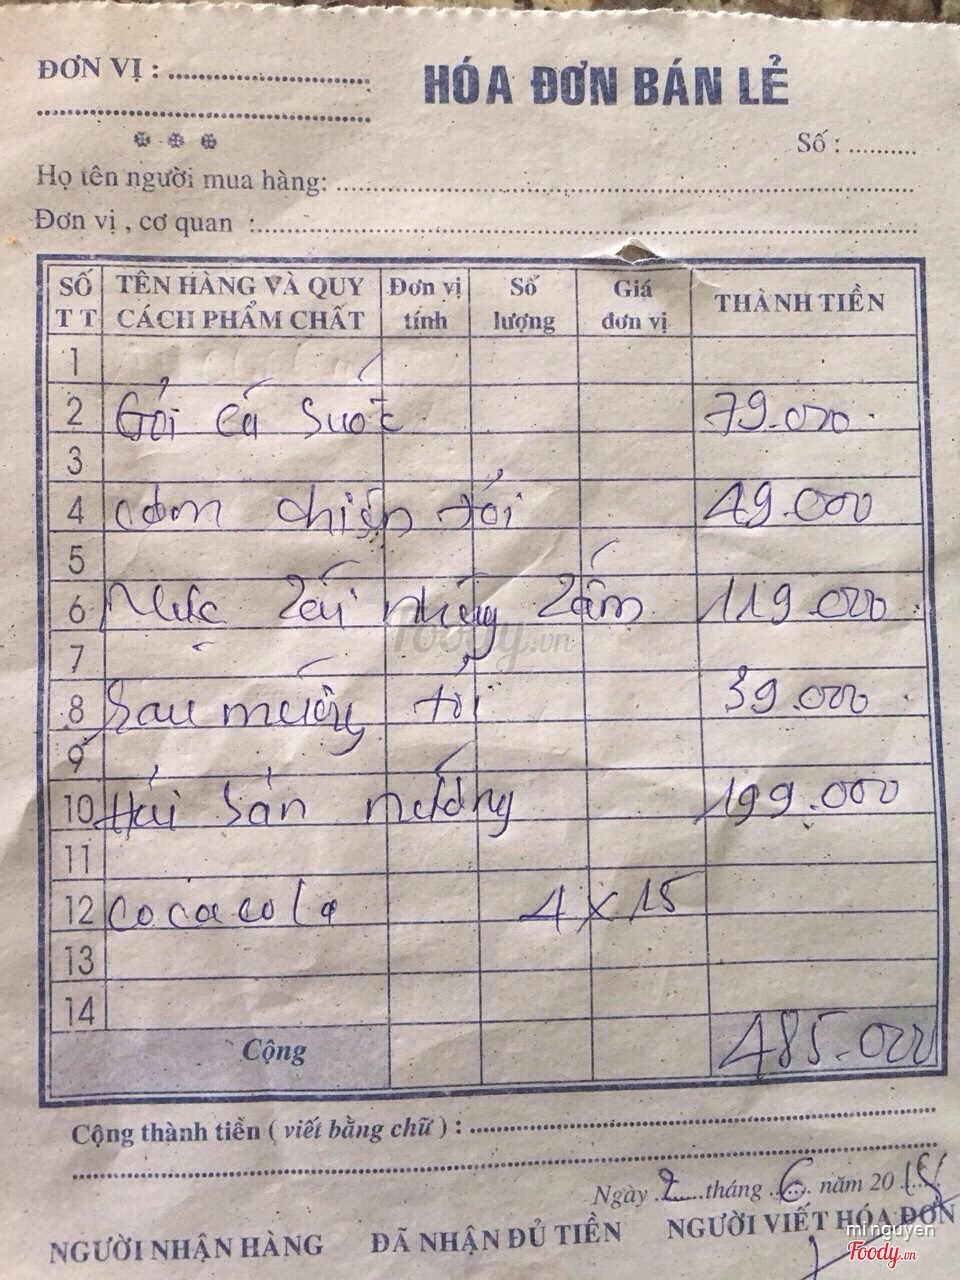 ĐƠN VỊ : ........................
HÓA ĐƠN BÁN LẺ
Số : ..........
Họ tên người mua hàng: ........................
Đơn vị , cơ quan : ........................
SỐ TT TÊN HÀNG VÀ QUY CÁCH PHẨM CHẤT Đơn vị tính Số lượng Giá đơn vị THÀNH TIỀN
1
2 Gỏi cá suốt 79.000
3
4 cơm chiên tỏi 49.000
5
6 Mực nhúng 119.000
7
8 Rau muống tỏi 39.000
9
10 Hải sản nướng 199.000
11
12 Cocacola 4 x 15
13
14
Cộng 485.000
Cộng thành tiền ( viết bằng chữ ) : ........................
Ngày 2 tháng 6 năm 2015
NGƯỜI NHẬN HÀNG ĐÃ NHẬN ĐỦ TIỀN NGƯỜI VIẾT HÓA ĐƠN
Foody.vn
minguyen
Foody.vn